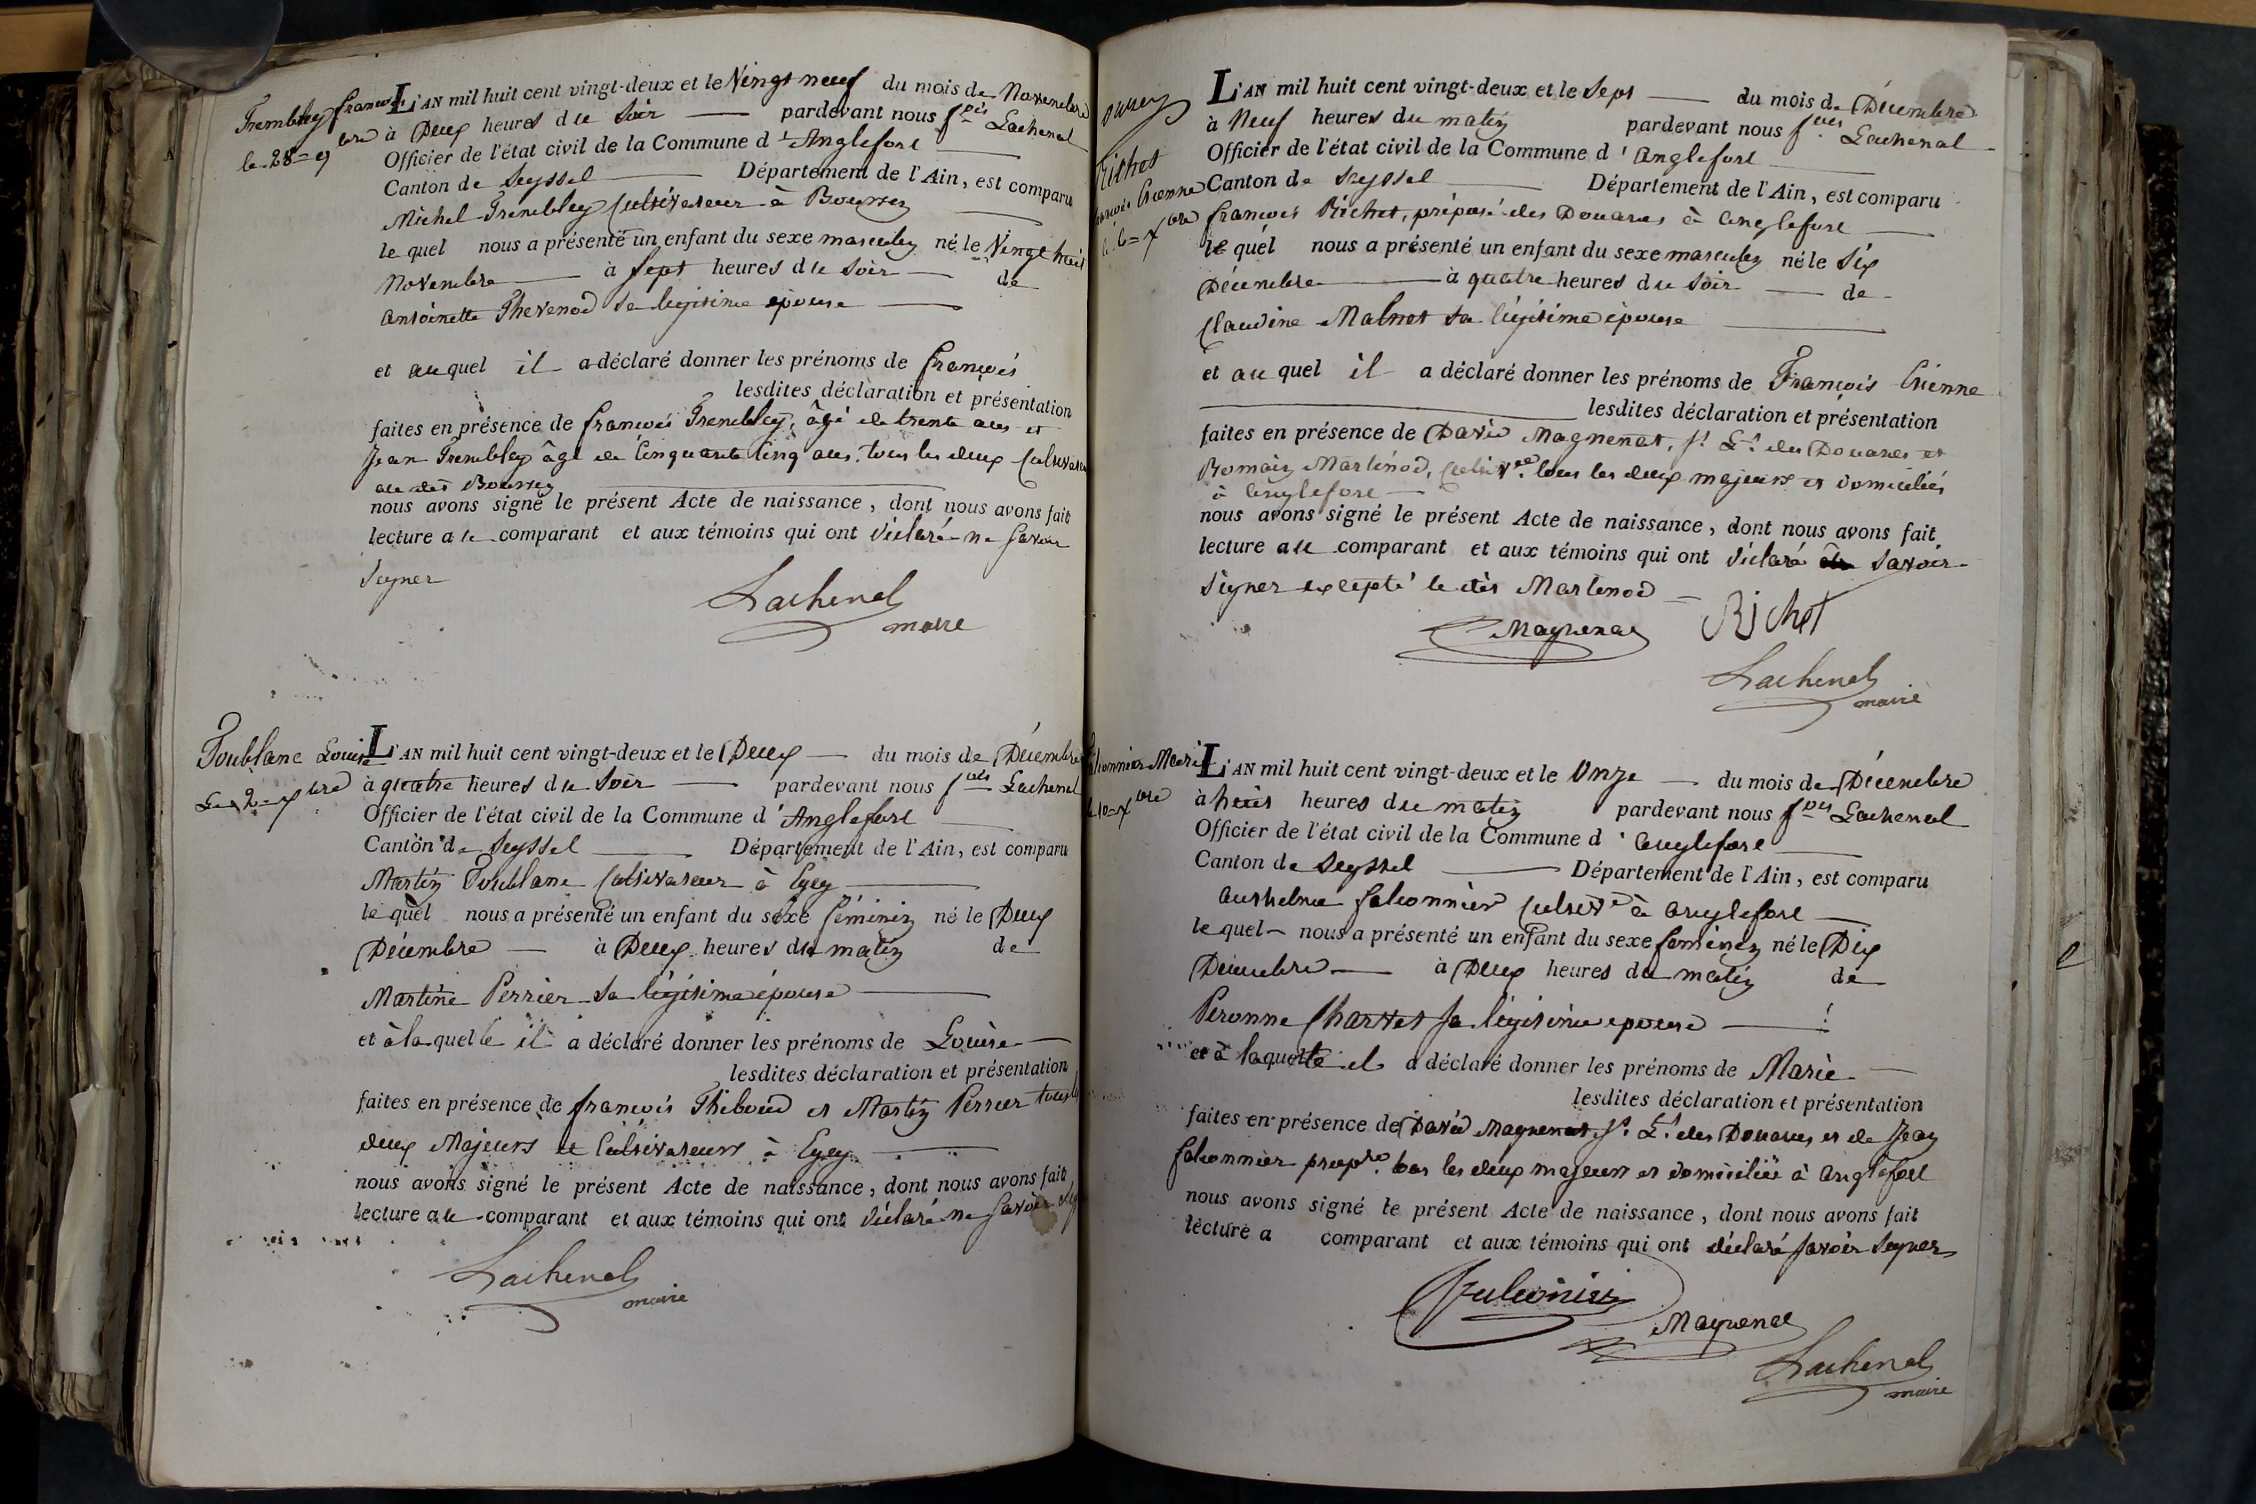 Trembley françois
le 28 = 9bre
L'AN mil huit cent vingt-deux et le Vingt neuf du mois de Novembre
à Deux heures du Soir pardevant nous fçois Lachenal
Officier de l'état civil de la Commune d'Anglefort
Canton de Seyssel Département de l'Ain, est comparu
Michel Trembley Cultivateur à Boursin
le quel nous a présenté un enfant du sexe masculin né le Vingt huit
Novembre à Sept heures du Soir de
Antoinette Thevenod sa légitime épouse
et au quel il a déclaré donner les prénoms de françois
lesdites déclaration et présentation
faites en présence de françois Trembley, âgé de trente ans et
Jean Trembley âgé de Cinquante Cinq ans, tous les deux Cultivateurs
au dit Boursin
nous avons signé le présent Acte de naissance, dont nous avons fait
lecture au comparant et aux témoins qui ont déclaré ne Savoir
Signer
Lachenal
maire
Toublanc Louise
Le 2 = Xbre
L'AN mil huit cent vingt-deux et le Deux du mois de Décembre
à quatre heures du Soir pardevant nous fçois Lachenal
Officier de l'état civil de la Commune d'Anglefort
Canton de Seyssel Département de l'Ain, est comparu
Martin Toublanc Cultivateur à Eyey
le quel nous a présenté un enfant du sexe féminin né le Deux
Décembre à Deux heures du matin de
Martine Perrier sa légitime épouse
et à la quelle il a déclaré donner les prénoms de Louise
lesdites déclaration et présentation
faites en présence de françois Thiboud et Martin Perrier tous les
deux Majeurs et Cultivateurs à Eyey
nous avons signé le présent Acte de naissance, dont nous avons fait
lecture au comparant et aux témoins qui ont déclaré ne Savoir
Lachenal
maire
Richet
françois Etienne
le 6 = Xbre
L'AN mil huit cent vingt-deux et le Sept du mois de Décembre
à Neuf heures du matin pardevant nous fçois Lachenal
Officier de l'état civil de la Commune d'Anglefort
Canton de Seyssel Département de l'Ain, est comparu
françois Richet, préposé des Douanes à Anglefort
le quel nous a présenté un enfant du sexe masculin né le Six
Décembre à quatre heures du Soir de
Claudine Malnot sa légitime épouse
et au quel il a déclaré donner les prénoms de François Etienne
lesdites déclaration et présentation
faites en présence de David Magnenat, St Lt des Douanes et
Romain Martinod, Cultivr tous les deux majeurs et domiciliés
à Anglefort
nous avons signé le présent Acte de naissance, dont nous avons fait
lecture au comparant et aux témoins qui ont déclaré Savoir
Signer excepté le dit Martinod
Magnenat Richet
Lachenal
maire
falconnier Marie
le 10 = Xbre
L'AN mil huit cent vingt-deux et le Onze du mois de Décembre
à huit heures du matin pardevant nous fçois Lachenal
Officier de l'état civil de la Commune d'anglefort
Canton de Seyssel Département de l'Ain, est comparu
Anthelme falconnier Cultivr à anglefort
le quel nous a présenté un enfant du sexe féminin né le Dix
Décembre à Deux heures du matin de
Peronne Charvet sa légitime épouse
et à laquelle il a déclaré donner les prénoms de Marie
lesdites déclaration et présentation
faites en présence de David Magnenat St Lt des Douanes et de Jean
falconnier proprre tous les deux majeurs et domiciliés à anglefort
nous avons signé le présent Acte de naissance, dont nous avons fait
lecture a comparant et aux témoins qui ont déclaré Savoir Signer
Falconnier
Magnenat
Lachenal
maire